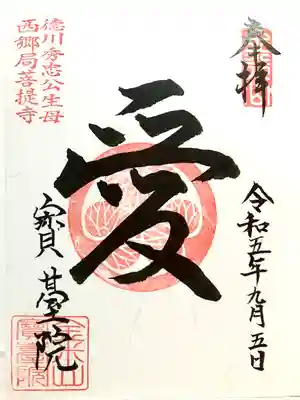 奉拝
令和五年九月五日
愛
徳川秀忠公生母
西郷局菩提寺
寳䑓院